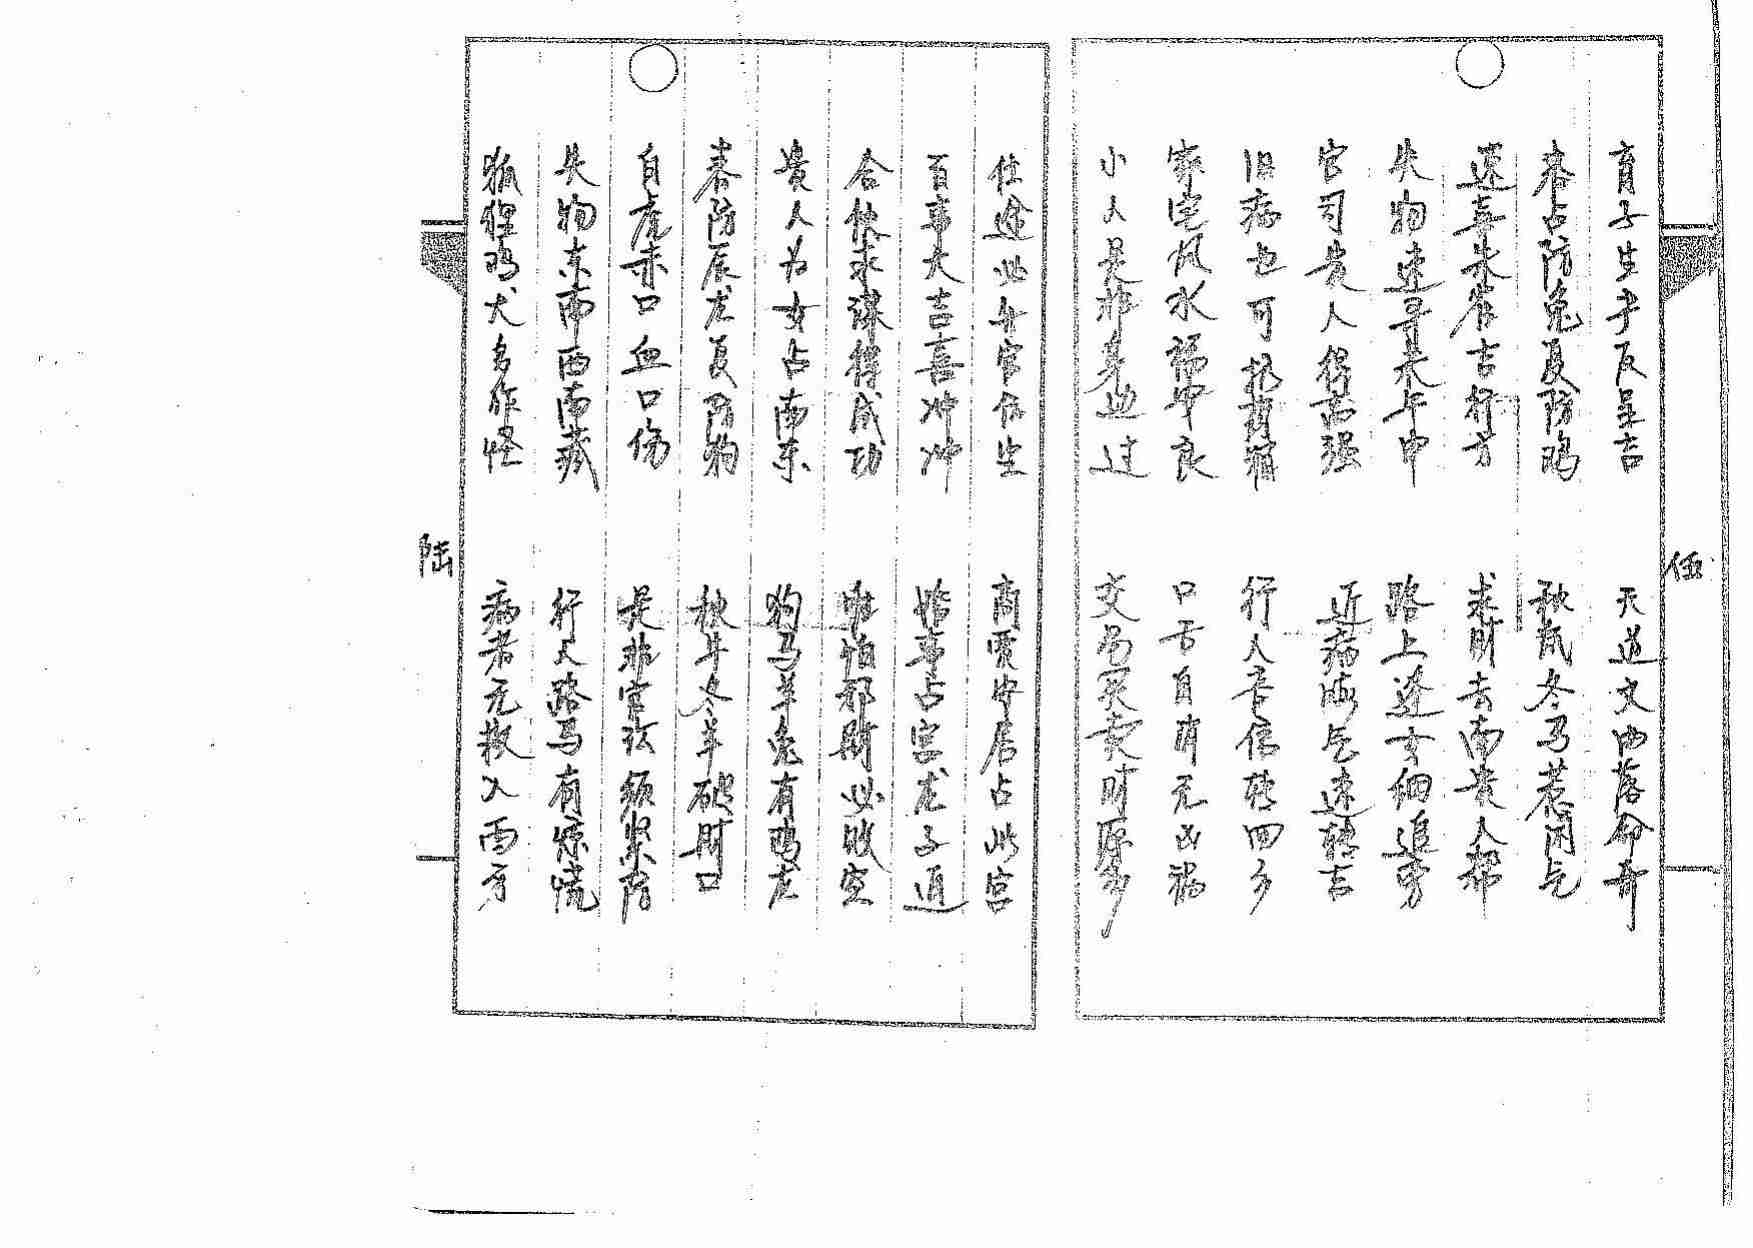 育子生于辰呈吉 天道文曲落命奇
春占防兔夏防鸡 秋鼠冬马惹闲气
速喜朱雀吉行方 求财去南贵人帮
失物速寻未午申 路上逢女细追旁
官司贵人得占强 近病海气速转吉
旧病也可抗 行人音信转四乡
家宅风水福中良 口舌自消无凶祸
小人是非身边过 交易买卖财源多
伍
仕途此年官位坐 商贾安居占此宫
百事大吉喜冲冲 婚事占宫龙子通
合伙求谋得成功 唯怕邪财必败空
贵人为女占南东 狗马羊兔有鸡龙
春防辰龙夏防狗 秋牛冬羊破财口
白虎赤口血口伤 是非官讼须紧防
失物东南西南藏 行人路马有惊慌
狐狸鸡犬多作怪 病者无救入西方
陆